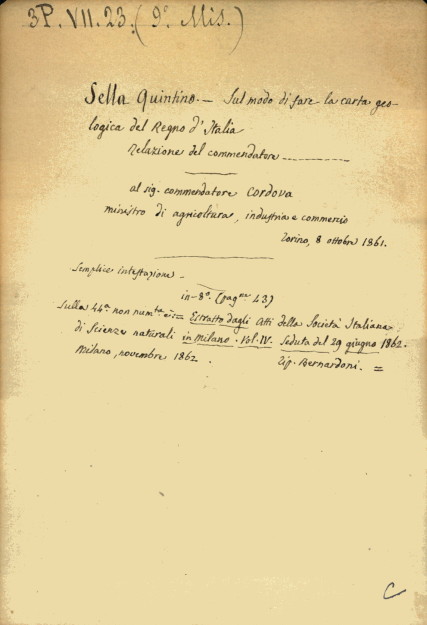 3P. VII. 23. (9° Mis.)
Sella Quintino. — Sul modo di fare la carta geo-
logica del Regno d'Italia
Relazione del commendatore
al sig. commendatore Cordova
ministro di agricoltura, industria e commercio
Torino, 8 ottobre 1861.
Semplice intestazione —
in-8°. (pag.ne 43)
Sulla 44ª non num.ta è: = Estratto dagli Atti della Società Italiana
di Scienze naturali in Milano. Vol. IV. Seduta del 29 giugno 1862.
Milano, novembre 1862. Tip. Bernardoni. =
C